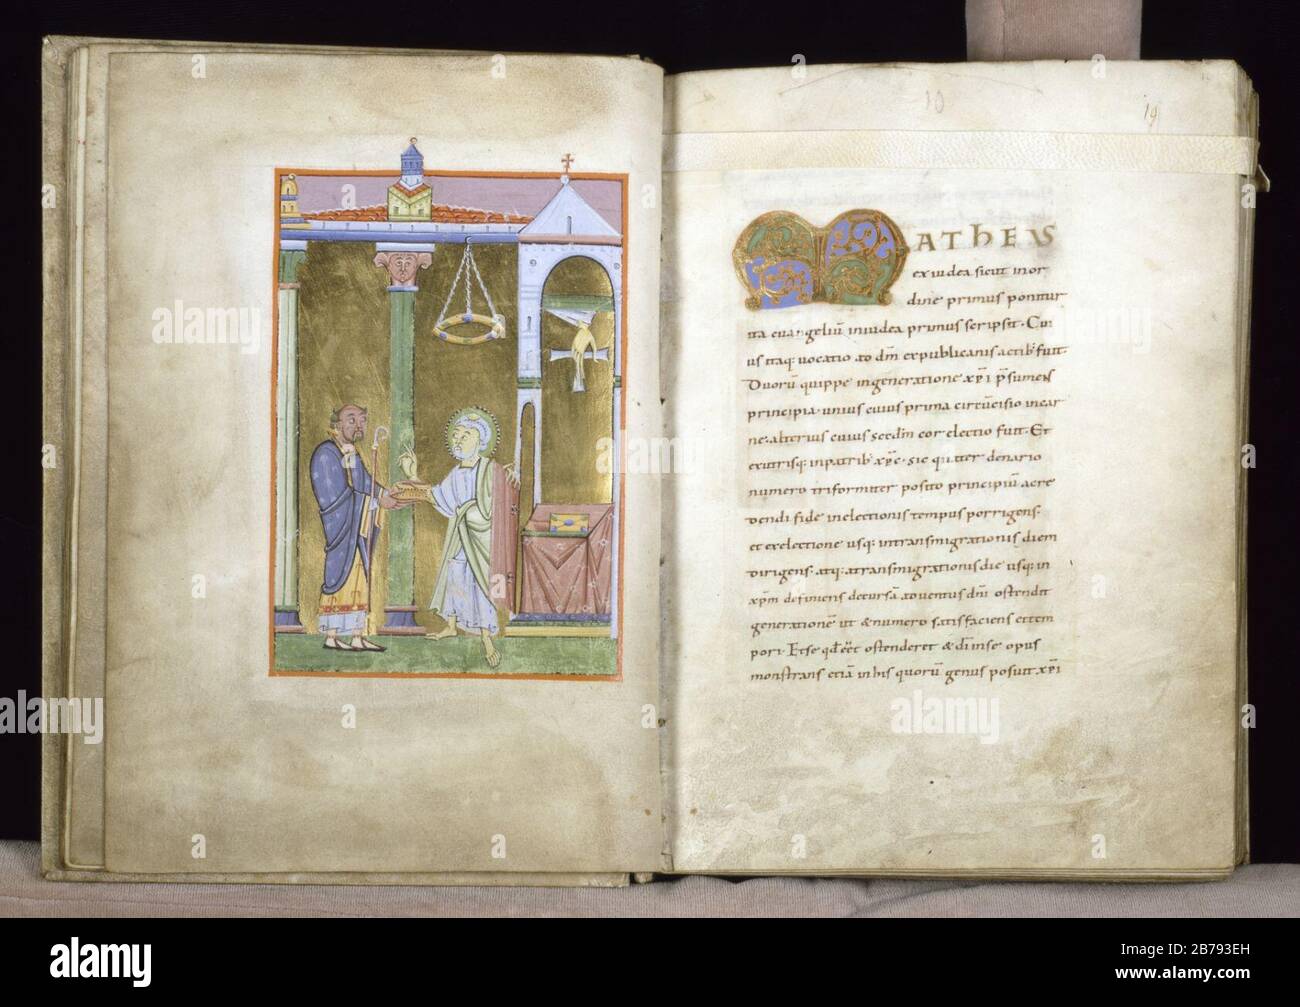 10
19
MATHEUS
ex iudea sicut inor
dine primus ponitur
ita euangeliū iniudea primus scripsit. Cui
us itaq; uocatio ad dm̄ expublicanis actib; fuit.
Duorū quippe ingeneratione xp̄i p̄sumens
principia. unius cuius prima circūcisio incar
ne. alterius cuius scdm̄ cor electio fuit. Et
exutrisq; inpatrib; xp̄c. Sic quater denario
numero triformiter posito principiū acre
dendi fide inelectionis tempus porrigens.
et exelectione usq; intransmigrationis diem
dirigens. atq; atransmigrationis die usq; in
xp̄m definiens decursā aduentus dn̄i ostendit
generationē. ut & numero satisfaciens ettem
pori. Etse qd̄ eēt ostenderet & dī inse opus
monstrans etiā inhis quorū genus posuit xp̄i
alamy
Image ID: 2B793EH
www.alamy.com